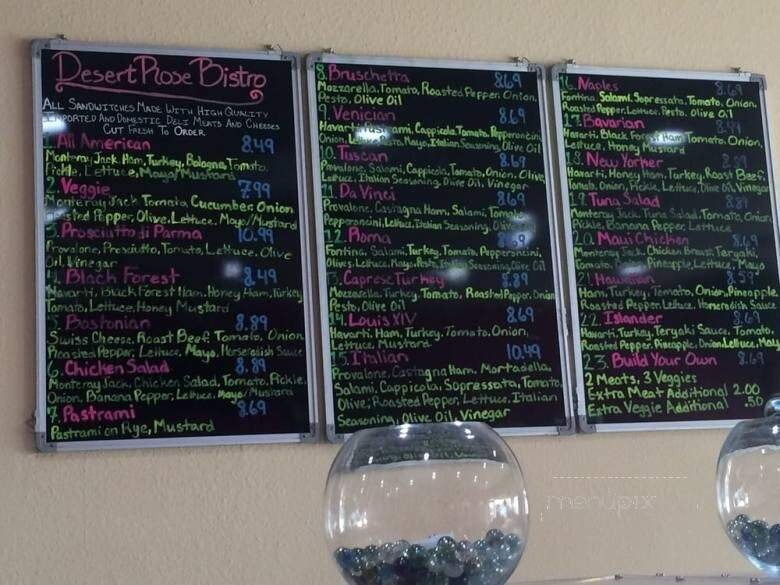 Desert Rose Bistro
All Sandwitches Made With High Quality
Imported And Domestic Deli Meats And Cheeses
Cut Fresh To Order
1. All American 8.49
Monterey Jack, Ham, Turkey, Bologna, Tomato,
Pickle, Lettuce, Mayo/Mustard
2. Veggie 7.99
Monterey Jack, Tomato, Cucumber, Onion
Roasted Pepper, Olive, Lettuce, Mayo/Mustard
3. Prosciutto di Parma 10.99
Provalone, Prosciutto, Tomato, Lettuce, Olive
Oil, Vinegar
4. Black Forest 8.49
Havarti, Black Forest Ham, Honey Ham, Turkey
Tomato, Lettuce, Honey Mustard
5. Bostonian 8.89
Swiss Cheese, Roast Beef, Tomato, Onion
Roasted Pepper, Lettuce, Mayo, Horseradish Sauce
6. Chicken Salad 8.89
Monterey Jack, Chicken Salad, Tomato, Pickle,
Onion, Banana Pepper, Lettuce, Mayo/Mustard
7. Pastrami 8.69
Pastrami on Rye, Mustard
8. Bruschetta 8.69
Mozzarella, Tomato, Roasted Pepper, Onion,
Pesto, Olive Oil
9. Venician 8.69
Havarti, Salami, Cappicola, Tomato, Pepperoncini,
Onion, Lettuce, Pesto, Mayo, Italian Seasoning, Olive Oil
10. Tuscan 8.69
Provalone, Salami, Cappicola, Tomato, Onion, Olive
Lettuce, Italian Seasoning, Olive Oil, Vinegar
11. Da Vinci 8.69
Provalone, Castagna Ham, Salami, Tomato
Pepperoncini, Lettuce, Italian Seasoning, Olive Oil
12. Roma 8.69
Fontina, Salami, Turkey, Tomato, Pepperoncini,
Olives, Lettuce, Mayo, Pesto, Italian Seasoning, Olive Oil
13. Caprese Turkey 8.89
Mozzarella, Turkey, Tomato, Roasted Pepper, Onion
Pesto, Olive Oil
14. Louis XIV 8.69
Havarti, Ham, Turkey, Tomato, Onion,
Lettuce, Mustard
15. Italian 10.49
Provalone, Castagna Ham, Mortadella,
Salami, Cappicola, Sopressata, Tomato,
Olive, Roasted Pepper, Lettuce, Italian
Seasoning, Olive Oil, Vinegar
16. Naples 8.69
Fontina, Salami, Sopressata, Tomato, Onion,
Roasted Pepper, Lettuce, Pesto, Olive Oil
17. Bavarian
Havarti, Black Forest Ham, Tomato, Onion,
Lettuce, Honey Mustard
18. New Yorker 8.89
Havarti, Honey Ham, Turkey, Roast Beef,
Tomato, Onion, Pickle, Lettuce, Olive Oil, Vinegar
19. Tuna Salad 8.89
Monterey Jack, Tuna Salad, Tomato, Onion,
Pickle, Banana Pepper, Lettuce
20. Maui Chicken 8.69
Monterey Jack, Chicken Breast, Teryaki,
Tomato, Pineapple, Lettuce, Mayo
21. Hawaiian 8.59
Ham, Turkey, Tomato, Onion, Pineapple
Roasted Pepper, Lettuce, Horseradish Sauce
22. Islander 8.69
Havarti, Turkey, Teryaki Sauce, Tomato,
Roasted Pepper, Pineapple, Onion, Lettuce, Mayo
23. Build Your Own 8.69
2 Meats, 3 Veggies
Extra Meat Additional 2.00
Extra Veggie Additional .50
menupix